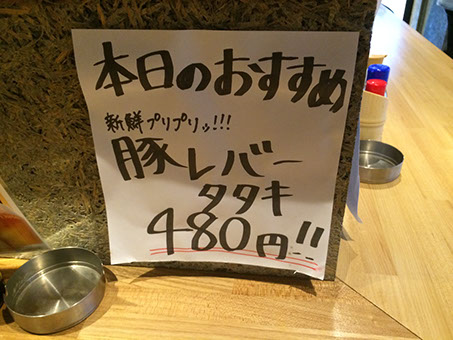 本日のおすすめ
新鮮プリプリッ!!!
豚レバー
タタキ
480円!!